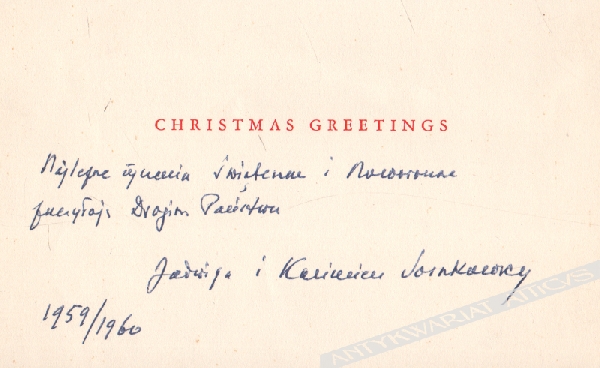 CHRISTMAS GREETINGS
Najlepsze życzenia Świąteczne i Noworoczne
przesyłają Drogim Państwu
Jadwiga i Kazimierz Sosnkowscy
1959/1960
ANTYKWARIAT ATTICVS